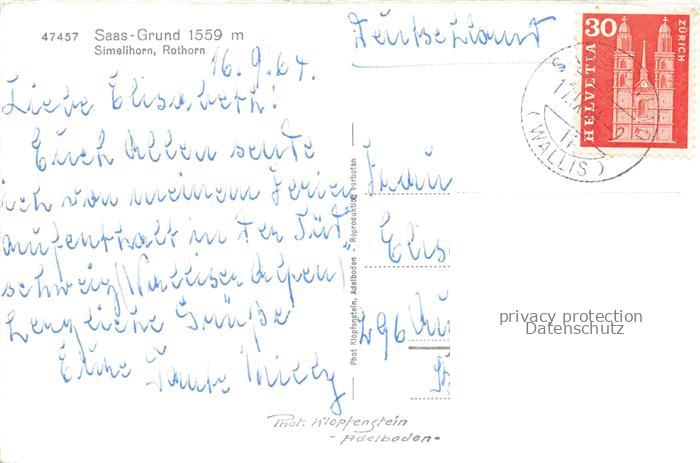 47457 Saas-Grund 1559 m
Simelihorn, Rothorn
16.9.64.
Liebe Elisabeth!
Euch Allen sende
ich von meinem Ferien
aufenthalt in der Süd-
schweiz (Walliser Alpen)
herzliche Grüße
Eure Tante Milly
Phot Klopfenstein, Adelboden - Reproduktion verboten
Deutschland
Frau
Elis
296
30
HELVETIA
ZÜRICH
(WALLIS)
privacy protection
Datenschutz
Phot. Klopfenstein
- Adelboden -